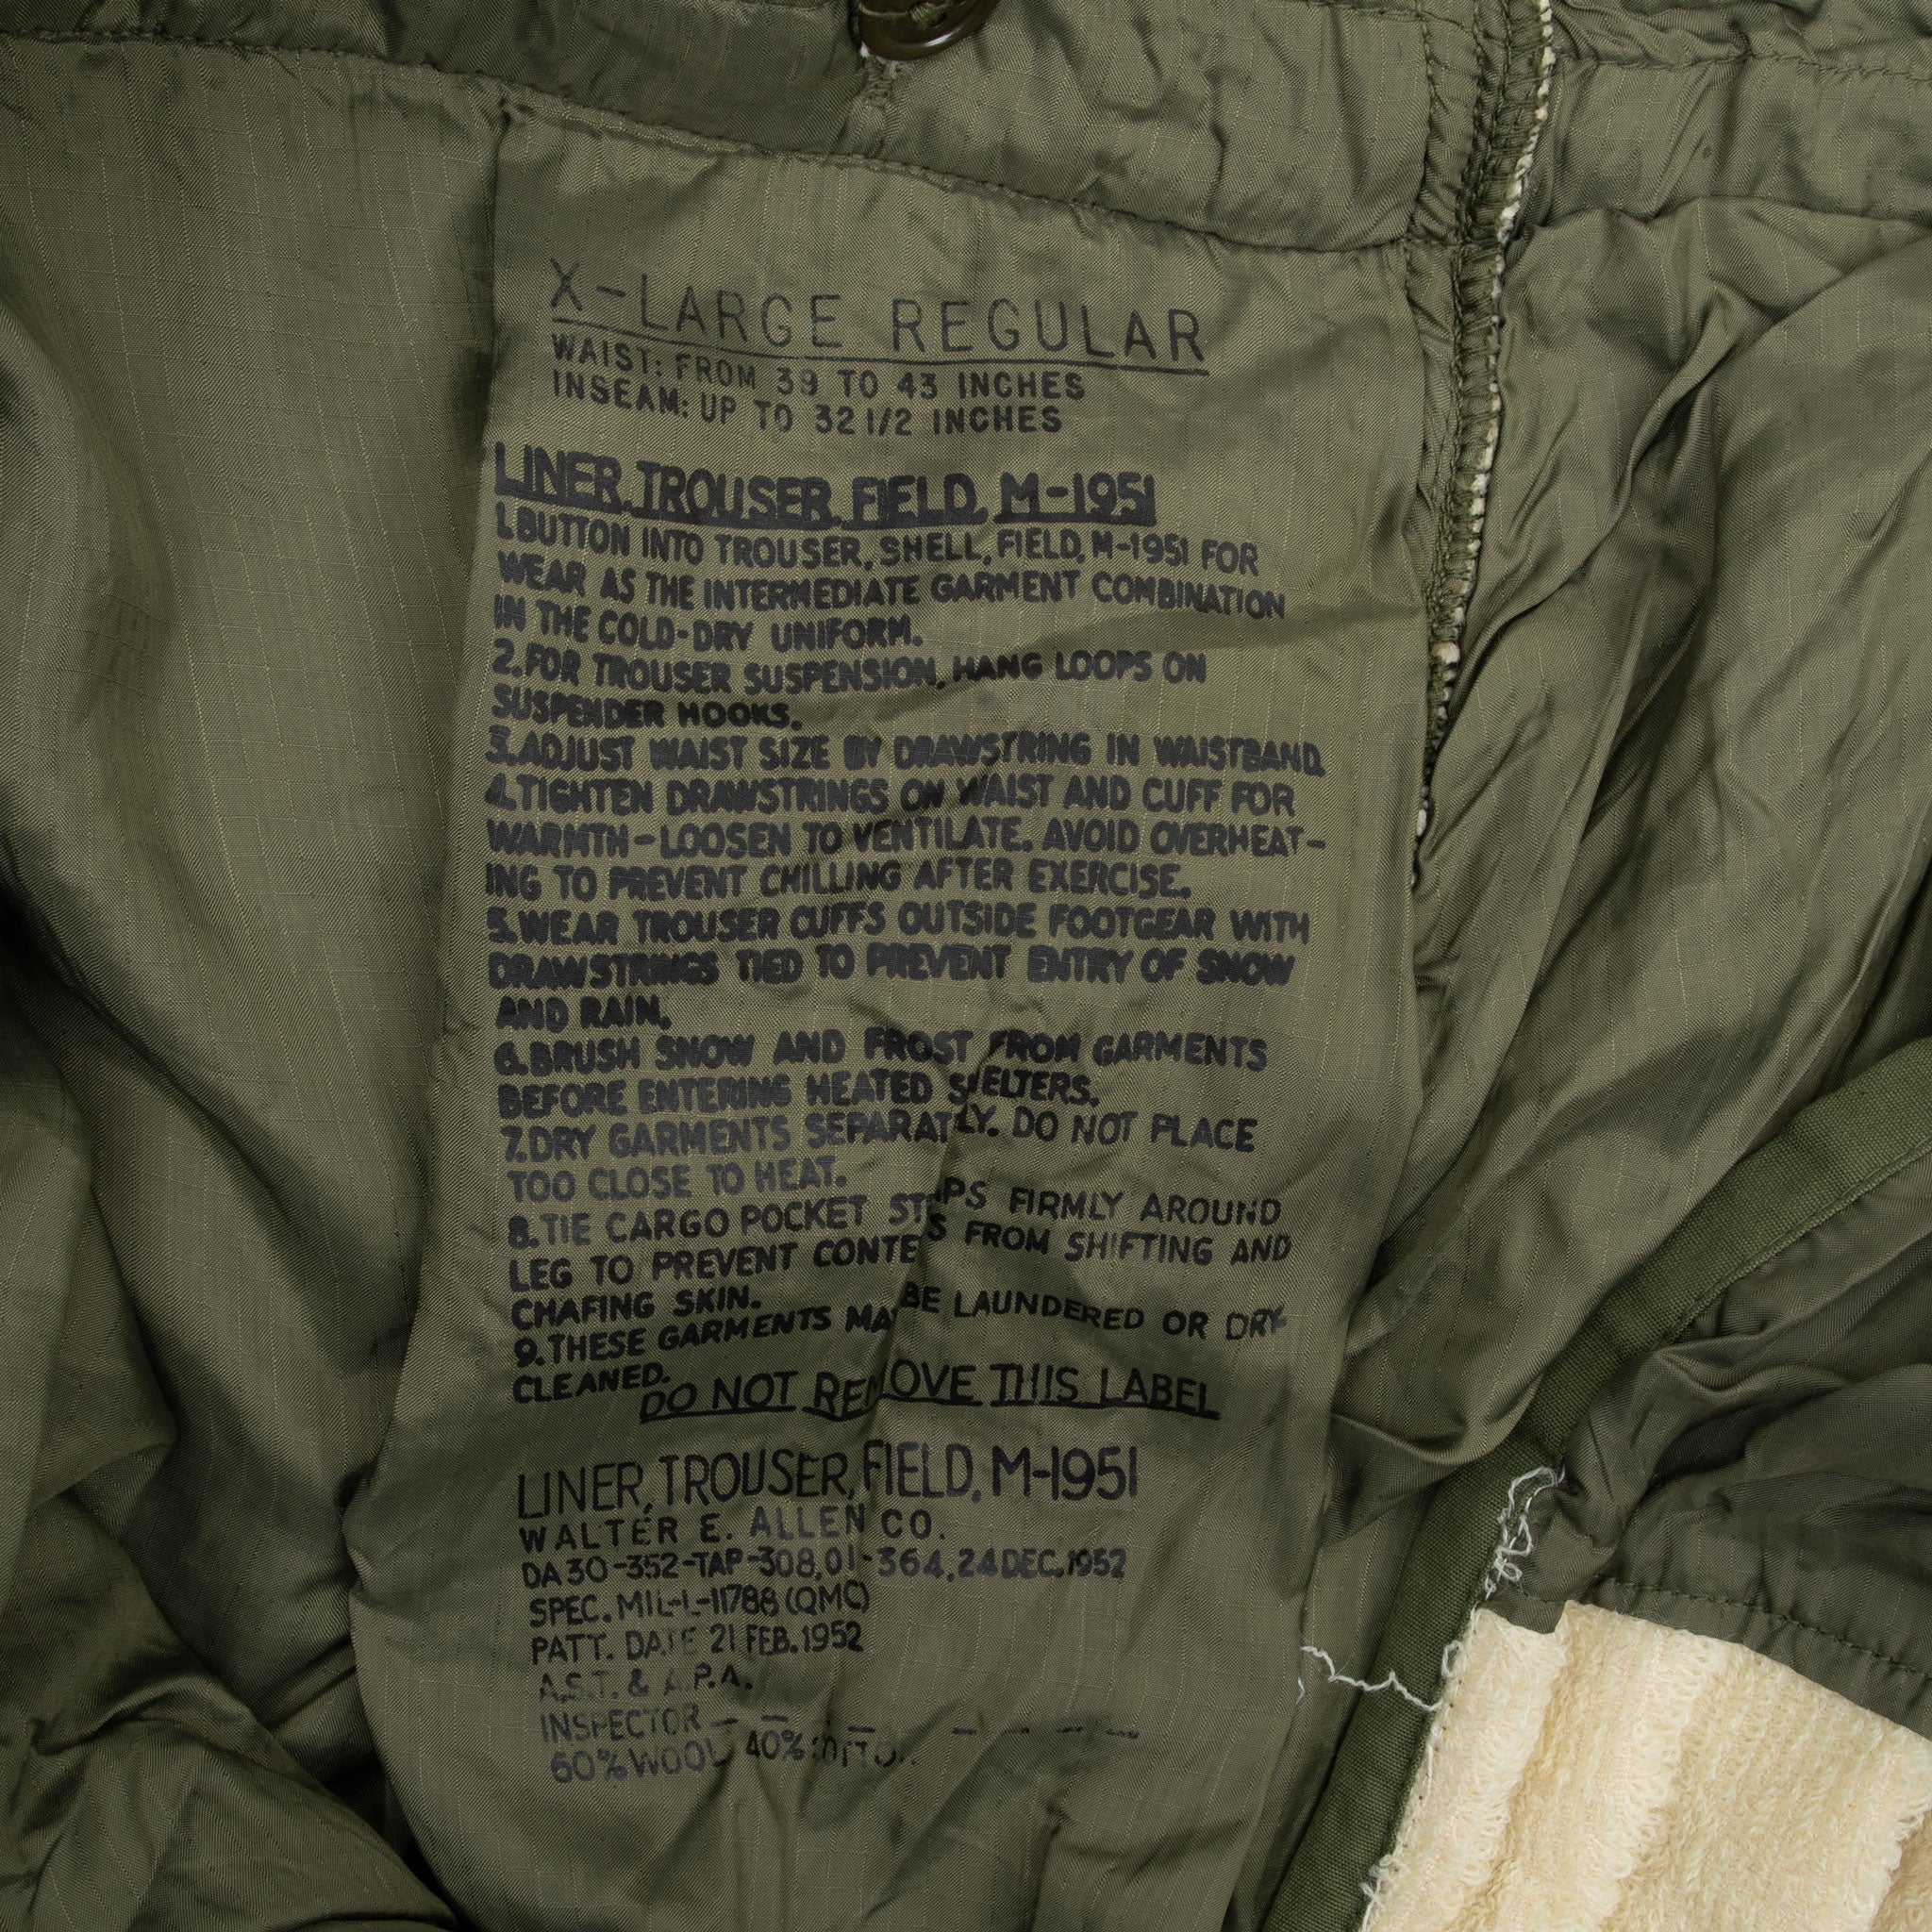 X-LARGE REGULAR
WAIST: FROM 39 TO 43 INCHES
INSEAM: UP TO 32 1/2 INCHES
LINER, TROUSER, FIELD, M-1951
1. BUTTON INTO TROUSER, SHELL, FIELD, M-1951 FOR
WEAR AS THE INTERMEDIATE GARMENT COMBINATION
IN THE COLD-DRY UNIFORM.
2. FOR TROUSER SUSPENSION, HANG LOOPS ON
SUSPENDER HOOKS.
3. ADJUST WAIST SIZE BY DRAWSTRING IN WAISTBAND.
4. TIGHTEN DRAWSTRINGS ON WAIST AND CUFF FOR
WARMTH - LOOSEN TO VENTILATE. AVOID OVERHEAT-
ING TO PREVENT CHILLING AFTER EXERCISE.
5. WEAR TROUSER CUFFS OUTSIDE FOOTGEAR WITH
DRAWSTRINGS TIED TO PREVENT ENTRY OF SNOW
AND RAIN.
6. BRUSH SNOW AND FROST FROM GARMENTS
BEFORE ENTERING HEATED SHELTERS.
7. DRY GARMENTS SEPARATLY. DO NOT PLACE
TOO CLOSE TO HEAT.
8. TIE CARGO POCKET STRAPS FIRMLY AROUND
LEG TO PREVENT CONTENTS FROM SHIFTING AND
CHAFING SKIN.
9. THESE GARMENTS MAY BE LAUNDERED OR DRY-
CLEANED.
DO NOT REMOVE THIS LABEL
LINER, TROUSER, FIELD, M-1951
WALTER E. ALLEN CO.
DA 30-352-TAP-308, 01-364, 24 DEC. 1952
SPEC. MIL-L-11788 (QMC)
PATT. DATE 21 FEB. 1952
A.S.T. & A.P.A.
INSPECTOR
60% WOOL 40% COTTON